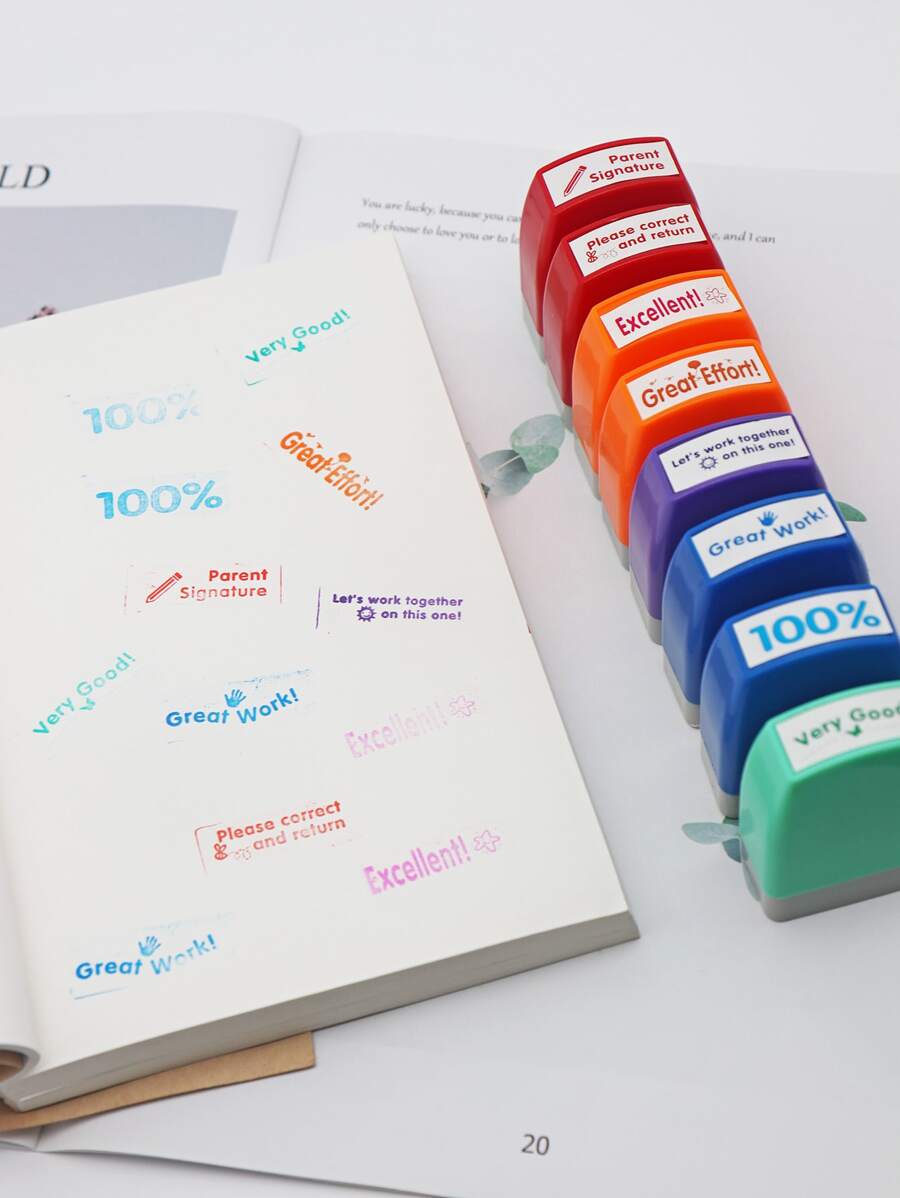 LD
You are lucky, because you ca
only choose to love you or to l
e, and I can
Parent
Signature
Please correct
and return
Excellent!
Great Effort!
Let's work together
on this one!
Great Work!
100%
Very Good
Very Good!
100%
Great Effort!
100%
Parent
Signature
Let's work together
on this one!
Very Good!
Great Work!
Excellent!
Please correct
and return
Excellent!
Great Work!
20